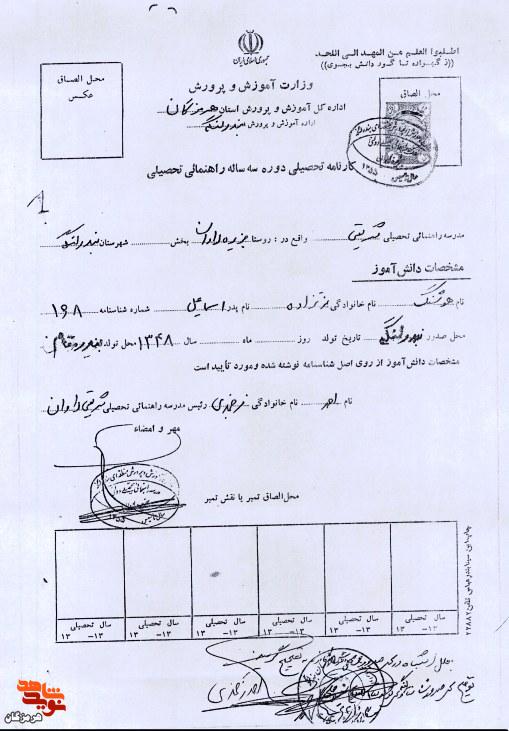 اطلبوا العلم من المهد الی اللحد
((ز گهواره تا گور دانش بجوی))
جمهوری اسلامی ایران
محل الصاق
عکس
وزارت آموزش و پرورش
اداره کل آموزش و پرورش استان هرمزگان
اداره آموزش و پرورش بندرلنگه
محل الصاق
کارنامه تحصیلی دوره سه ساله راهنمائی تحصیلی
مدرسه راهنمائی تحصیلی شریعتی واقع در : روستا جزیره لاوان بخش شهرستان بندرلنگه
مشخصات دانش‌آموز
نام هوشنگ نام خانوادگی نام پدر اسماعیل شماره شناسنامه ۱۶۸
محل صدور بندرلنگه تاریخ تولد روز ماه سال ۱۳۴۸ محل تولد بندر مقام
مشخصات دانش‌آموز از روی اصل شناسنامه نوشته شده و مورد تأیید است
نام نام خانوادگی رئیس مدرسه راهنمائی تحصیلی شریعتی لاوان
مهر و امضاء
محل الصاق تمبر یا نقش تمبر
سال تحصیلی سال تحصیلی سال تحصیلی سال تحصیلی سال تحصیلی سال تحصیلی
۱۳ -۱۳ ۱۳ -۱۳ ۱۳ -۱۳ ۱۳ -۱۳ ۱۳ -۱۳ ۱۳ -۱۳
نوید شاهد
هرمزگان